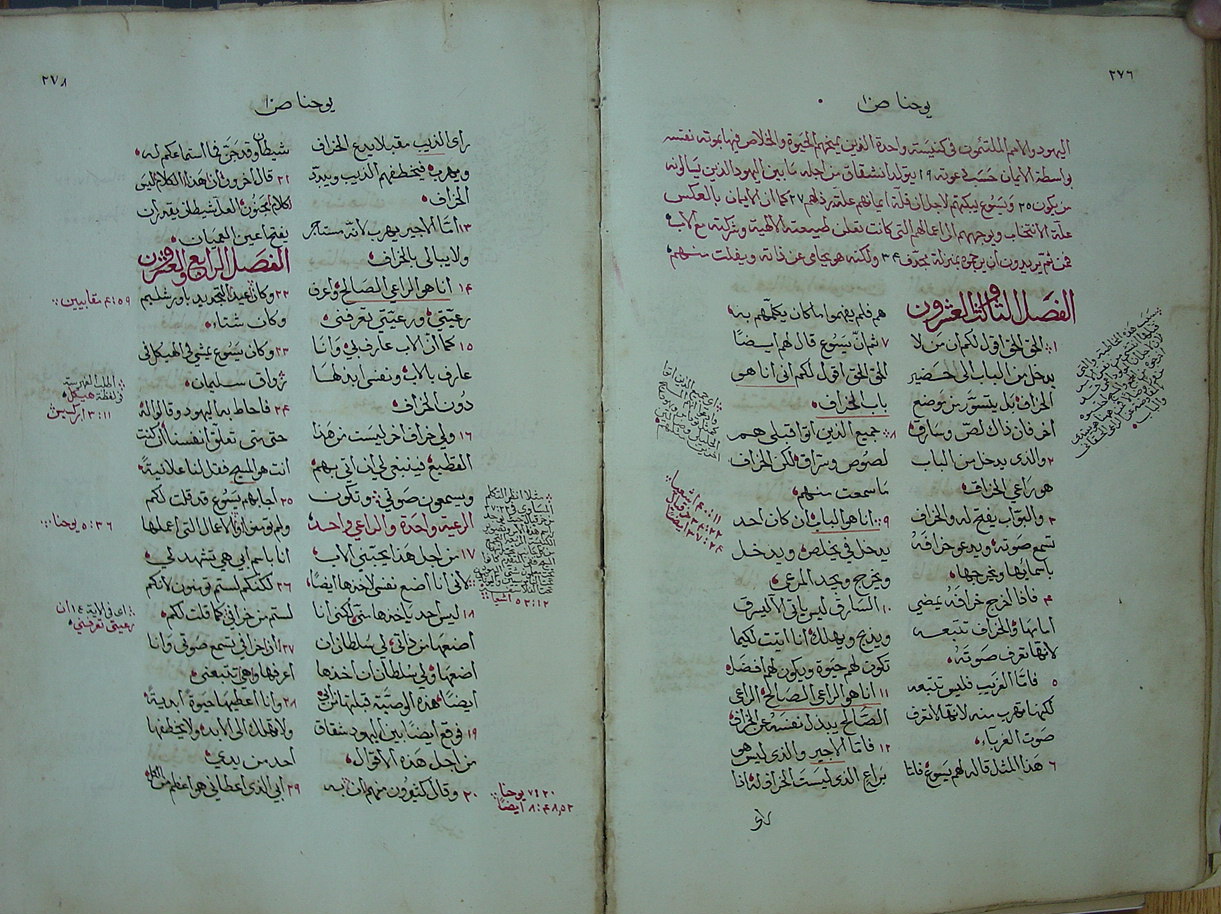 ٢٧٦
يوحنا ص١٠
اليهود والامم الملتئمون في كنيسته واحدة الذين يمنحهم الحيوة والخلاص فيها بموته نفسه
واسطة الايمان حسب دعوته ١٩ يتولد انشقاق من اجله ما بين اليهود الذين يسالونه
من يكون ٢٥ ويسوع يبكتهم لاجل ان قلة ايمانهم علة رذلهم ٢٧ كما ان الايمان بالعكس
علة الانتخاب ويوجههم الى اعمالهم التي كانت تعلن طبيعته الالهية وشركته مع الاب
فمن ثم يريدون ان يرجموه بمنزلة مجدف ٣٤ ولكنه هو يحامي عن ذاته ويفلت منهم
الفصل الثالث والعشرون
١ الحق الحق اقول لكم ان من لا
يدخل من الباب الى حضير
الخراف بل يتسور من موضع
اخر فان ذاك لص وسارق
٢ والذي يدخل من الباب
هو راعي الخراف
٣ والبواب يفتح له والخراف
تسمع صوته ويدعو خرافه
باسمايها ويخرجها
٤ فاذا اخرج خرافه يمضي
امامها والخراف تتبعه
لانها تعرف صوته
٥ فاما الغريب فليس تتبعه
لكنها تهرب منه لانها لا تعرف
صوت الغرباء
٦ هذا المثل قاله لهم يسوع فاما
هم فلم يفهموا ما كان يكلمهم به
٧ ثم ان يسوع قال لهم ايضًا
الحق الحق اقول لكم اني انا هو
باب الخراف
٨ جميع الذين اتوا قبلي هم
لصوص وسراق لكن الخراف
ما سمعت منهم
٩ انا هو الباب ان كان احد
يدخل في يخلص ويدخل
ويخرج ويجد المرعى
١٠ السارق ليس ياتي الا ليسرق
ويذبح ويهلك انا اتيت لكيما
تكون لهم حيوة ويكون لهم افضل
١١ انا هو الراعي الصالح الراعي
الصالح يبذل نفسه عن الخراف
١٢ فاما الاجير والذي ليس هو
براع الذي ليست الخراف له اذا
٤٠:١١ اشعيا
٣٤:٢٣ حزقيال
٣٧:٢٤ ايضًا
٢٧٨
يوحنا ص١٠
راى الذيب مقبلا يدع الخراف
ويهرب فيخطفهم الذيب ويبدد
الخراف
١٣ امّا الاجير يهرب لانه مستاجر
ولا يبالي بالخراف
١٤ انا هو الراعي الصالح واعرف
رعيتي ورعيتي تعرفني
١٥ كما ان الاب عارف بي وانا
عارف بالاب ونفسي ابذلها
دون الخراف
١٦ ولي خراف اخر ليست من هذا
القطيع فينبغي لي ان اتي بهم
ويسمعون صوتي وتكون
الرعية واحدة والراعي واحد
١٧ من اجل هذا يحبني الاب
لاني انا اضع نفسي لاخذها ايضًا
١٨ ليس احد ياخذها مني لكني انا
اضعها من ذاتي لي سلطان ان
اضعها ولي سلطان ان اخذها
ايضًا هذه الوصية قبلتها من ابي
١٩ فوقع ايضًا بين اليهود شقاق
من اجل هذه الاقوال
٢٠ وقال كثيرون منهم ان به
شيطان وقد جن فما استماعكم له
٢١ قال اخرون ان هذا الكلام ليس
كلام مجنون العل شيطان يقدر ان
يفتح اعين العميان
الفصل الرابع والعشرون
٢٢ وكان عيد التجديد باورشليم
وكان شتاء
٢٣ وكان يسوع يمشي في الهيكل في
رواق سليمان
٢٤ فاحاط به اليهود وقالوا له
حتى متى تعلق انفسنا ان كنت
انت هو المسيح فقل لنا علانية
٢٥ اجابهم يسوع قد قلت لكم
ولم تومنوا والاعمال التي اعملها
انا باسم ابي هي تشهد لي
٢٦ لكنكم لستم تومنون لانكم
لستم من خرافي كما قلت لكم
٢٧ ان خرافي تسمع صوتي وانا
اعرفها وهي تتبعني
٢٨ وانا اعطيها حيوة ابدية
ولا تهلك الى الابد ولا يخطفها
احد من يدي
٢٩ ابي الذي اعطاني هو اعظم من الكل
٥٣:١٢ اشعيا
٧:٢٠ يوحنا
٨:٤٨,٥٢ ايضًا
٤:٥٩ مقابيين
اطلب الفهرسة
في لفظة هيكل
٣:١١ ابركسيس
٥:٣٦ يوحنا
اي في الاية ١٤ ان
رعيتي تعرفني